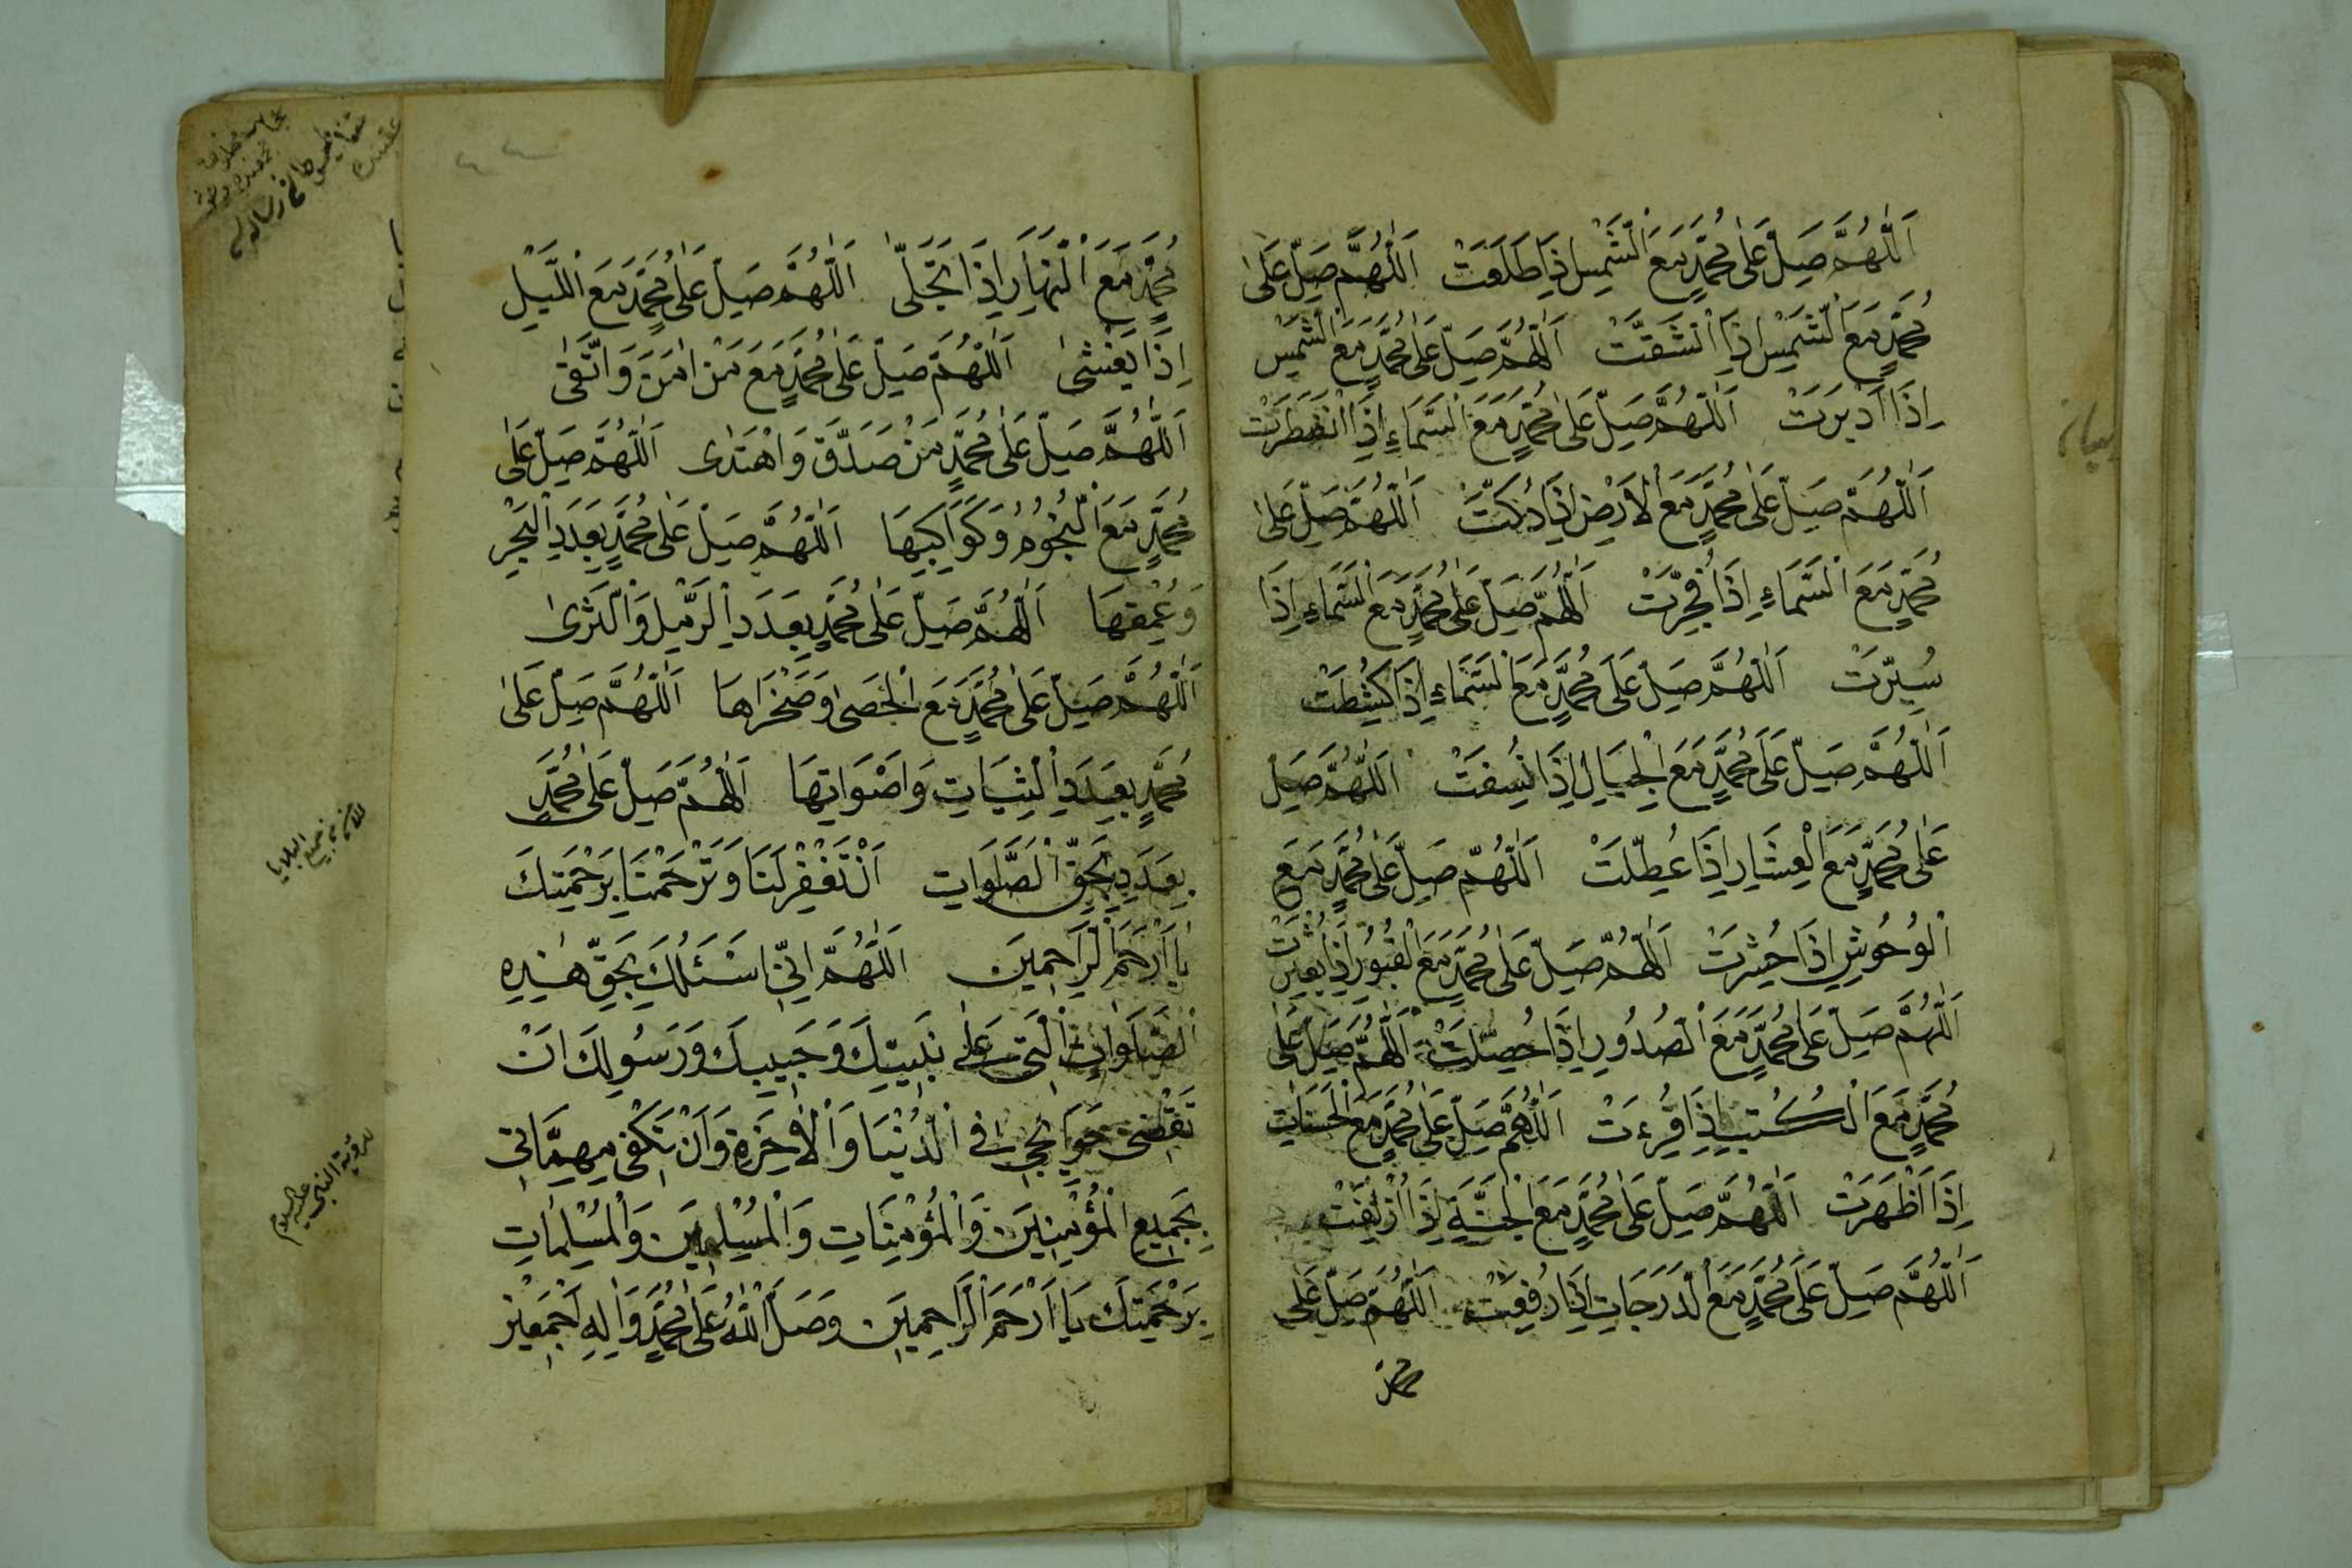 اَللّٰهُمَّ صَلِّ عَلٰى مُحَمَّدٍ مَعَ الْشَّمْسِ اِذَا طَلَعَتْ اَللّٰهُمَّ صَلِّ عَلٰى
مُحَمَّدٍ مَعَ الْشَّمْسِ اِذَا انْشَقَّتْ اَللّٰهُمَّ صَلِّ عَلٰى مُحَمَّدٍ مَعَ الْشَّمْسِ
اِذَا اَدْبَرَتْ اَللّٰهُمَّ صَلِّ عَلٰى مُحَمَّدٍ مَعَ الْسَّمَاءِ اِذَا انْفَطَرَتْ
اَللّٰهُمَّ صَلِّ عَلٰى مُحَمَّدٍ مَعَ الْاَرْضِ اِذَا دُكَّتْ اَللّٰهُمَّ صَلِّ عَلٰى
مُحَمَّدٍ مَعَ الْسَّمَاءِ اِذَا فُجِّرَتْ اَللّٰهُمَّ صَلِّ عَلٰى مُحَمَّدٍ مَعَ الْسَّمَاءِ اِذَا
سُيِّرَتْ اَللّٰهُمَّ صَلِّ عَلَى مُحَمَّدٍ مَعَ الْسَّمَاءِ اِذَا كُشِطَتْ
اَللّٰهُمَّ صَلِّ عَلَى مُحَمَّدٍ مَعَ الْجِبَالِ اِذَا نُسِفَتْ اَللّٰهُمَّ صَلِّ
عَلٰى مُحَمَّدٍ مَعَ الْعِشَارِ اِذَا عُطِّلَتْ اَللّٰهُمَّ صَلِّ عَلٰى مُحَمَّدٍ مَعَ
الْوُحُوشِ اِذَا حُشِرَتْ اَللّٰهُمَّ صَلِّ عَلٰى مُحَمَّدٍ مَعَ الْقُبُورِ اِذَا بُعْثِرَتْ
اَللّٰهُمَّ صَلِّ عَلٰى مُحَمَّدٍ مَعَ الْصُدُورِ اِذَا حُصِّلَتْ اَللّٰهُمَّ صَلِّ عَلٰى
مُحَمَّدٍ مَعَ الْكُتُبِ اِذَا قُرِءَتْ اَللّٰهُمَّ صَلِّ عَلٰى مُحَمَّدٍ مَعَ الْحَسَنَاتِ
اِذَا اَظْهَرَتْ اَللّٰهُمَّ صَلِّ عَلٰى مُحَمَّدٍ مَعَ الْجَنَّةِ اِذَا اُزْلِفَتْ
اَللّٰهُمَّ صَلِّ عَلٰى مُحَمَّدٍ مَعَ الْدَرَجَاتِ اِذَا رُفِعَتْ اَللّٰهُمَّ صَلِّ عَلٰى
محمد
مُحَمَّدٍ مَعَ الْنَهَارِ اِذَا تَجَلّٰى اَللّٰهُمَّ صَلِّ عَلٰى مُحَمَّدٍ مَعَ الْلَيْلِ
اِذَا يَغْشٰى اَللّٰهُمَّ صَلِّ عَلٰى مُحَمَّدٍ مَعَ مَنْ اٰمَنَ وَاتَّقٰى
اَللّٰهُمَّ صَلِّ عَلٰى مُحَمَّدٍ مَنْ صَدَّقَ وَاهْتَدٰى اَللّٰهُمَّ صَلِّ عَلٰى
مُحَمَّدٍ مَعَ الْنُّجُوُمِ وَكَوَاكِبِهَا اَللّٰهُمَّ صَلِّ عَلٰى مُحَمَّدٍ بِعَدَدِ الْبَحْرِ
وَعُمْقِهَا اَللّٰهُمَّ صَلِّ عَلٰى مُحَمَّدٍ بِعَدَدِ الْرَّمْلِ وَالْثَرٰى
اَللّٰهُمَّ صَلِّ عَلٰى مُحَمَّدٍ مَعَ الْحَصٰى وَصَخْرَاهَا اَللّٰهُمَّ صَلِّ عَلٰى
مُحَمَّدٍ بِعَدَدِ الْنَبَاتِ وَاَصْوَاتِهَا اَللّٰهُمَّ صَلِّ عَلٰى مُحَمَّدٍ
بِعَدَدِ بِحَقِّ الْصَّلَوَاتِ اَنْ تَغْفِرْ لَنَا وَتَرْحَمْنَا بِرَحْمَتِكَ
يَا اَرْحَمَ الْرَاحِمِيَن اَللّٰهُمَّ اِنّٖى اَسْئَلُكَ بِحَقِّ هٰذِهِ
الْصَلَوَاتِ الْتٖى عَلٰى نَبِيِّكَ وَحَبِيبِكَ وَرَسُولِكَ اَنْ
تَقْضِىَ حَوَائِجٖى فٖى الْدُنْيَا وَالْاٰخِرَةِ وَاَنْ تَكْفٖى مُهِمَّاتٖى
بِجَمِيعِ الْمُؤْمِنِيَن وَالْمُؤْمِنَاتِ وَالْمُسْلِمِيَن وَالْمُسْلِمَاتِ
بِرَحْمَتِكَ يَا اَرْحَمَ الْرَّاحِمِيَن وَصَلَّ اللّٰهُ عَلٰى مُحَمَّدٍ وَاٰلِهِ اَجْمَعِيْنَ
لرؤية النبى عليه السلام